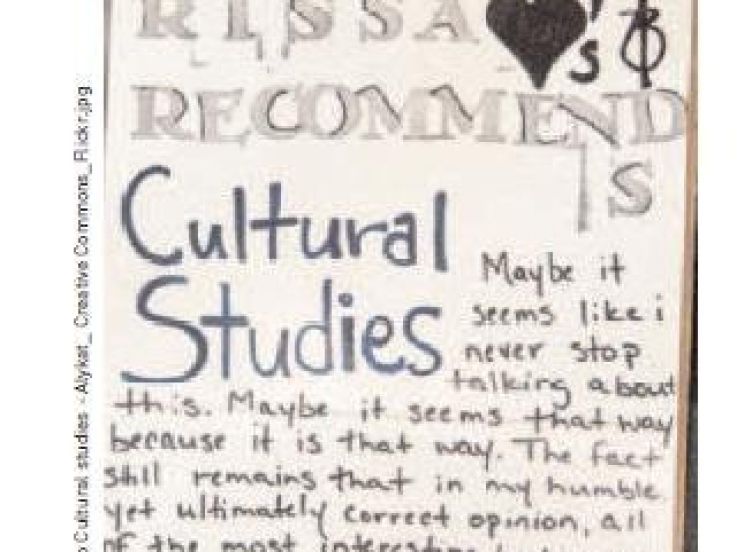 RISSA ♥'s &
RECOMMEND
S
Cultural
Studies
Maybe it
seems like i
never stop
talking about
this. Maybe it seems that way
because it is that way. The fact
still remains that in my humble
yet ultimately correct opinion, all
of the most interesting
Cultural studies - Alykat_ Creative Commons_Flickr.jpg